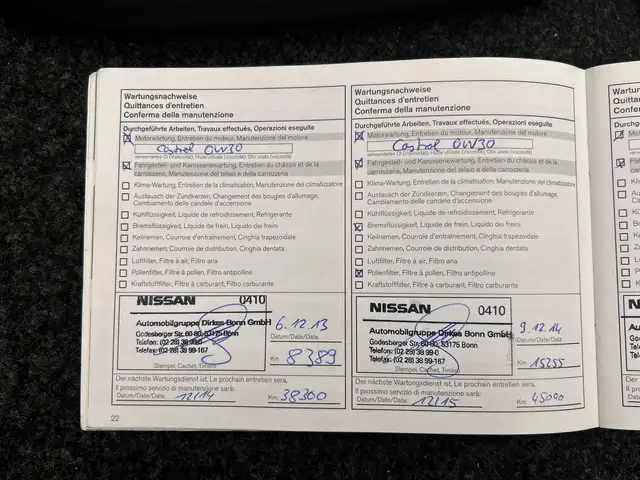 Wartungsnachweise
Quittances d'entretien
Conferma della manutenzione
Durchgeführte Arbeiten, Travaux effectués, Operazioni eseguite
Motorwartung, Entretien du moteur, Manutenzione del motore
Castrol 0W30
verwendetes Öl (Viskosität), Huile utilisée (viscosité), Olio usato (viscosità)
Fahrgestell- und Karosseriewartung, Entretien du châssis et de la
carrosserie, Manutenzione del telaio e della carrozzeria
Klima-Wartung, Entretien de la climatisation, Manutenzione del climatizzatore
Austausch der Zündkerzen, Changement des bougies d'allumage,
Cambiamento delle candele d'accensione
Kühlflüssigkeit, Liquide de refroidissement, Refrigerante
Bremsflüssigkeit, Liquide de frein, Liquido dei freni
Keilriemen, Courroie d'entraînement, Cinghia trapezoidale
Zahnriemen, Courroie de distribution, Cinghia dentata
Luftfilter, Filtre à air, Filtro aria
Pollenfilter, Filtre à pollen, Filtro antipolline
Kraftstofffilter, Filtre à carburant, Filtro carburante
NISSAN 0410
Automobilgruppe Dirkes Bonn GmbH
Godesberger Str. 60-80, 53175 Bonn
Telefon: (02 28) 38 99-0
Telefax: (02 28) 38 99-167
Stempel, Cachet, Timbro
6.12.13
Datum/Date/Data:
Km: 8389
Der nächste Wartungsdienst ist, Le prochain entretien sera,
Il prossimo servizio di manutenzione sarà:
Datum/Date/Data: 12/14 Km: 38300
22
Wartungsnachweise
Quittances d'entretien
Conferma della manutenzione
Durchgeführte Arbeiten, Travaux effectués, Operazioni eseguite
Motorwartung, Entretien du moteur, Manutenzione del motore
Castrol 0W30
verwendetes Öl (Viskosität), Huile utilisée (viscosité), Olio usato (viscosità)
Fahrgestell- und Karosseriewartung, Entretien du châssis et de la
carrosserie, Manutenzione del telaio e della carrozzeria
Klima-Wartung, Entretien de la climatisation, Manutenzione del climatizzatore
Austausch der Zündkerzen, Changement des bougies d'allumage,
Cambiamento delle candele d'accensione
Kühlflüssigkeit, Liquide de refroidissement, Refrigerante
Bremsflüssigkeit, Liquide de frein, Liquido dei freni
Keilriemen, Courroie d'entraînement, Cinghia trapezoidale
Zahnriemen, Courroie de distribution, Cinghia dentata
Luftfilter, Filtre à air, Filtro aria
Pollenfilter, Filtre à pollen, Filtro antipolline
Kraftstofffilter, Filtre à carburant, Filtro carburante
NISSAN 0410
Automobilgruppe Dirkes Bonn GmbH
Godesberger Str. 60-80, 53175 Bonn
Telefon: (02 28) 38 99-0
Telefax: (02 28) 38 99-167
Stempel, Cachet, Timbro
9.12.14
Datum/Date/Data:
Km: 15255
Der nächste Wartungsdienst ist, Le prochain entretien sera,
Il prossimo servizio di manutenzione sarà:
Datum/Date/Data: 12/15 Km: 45000